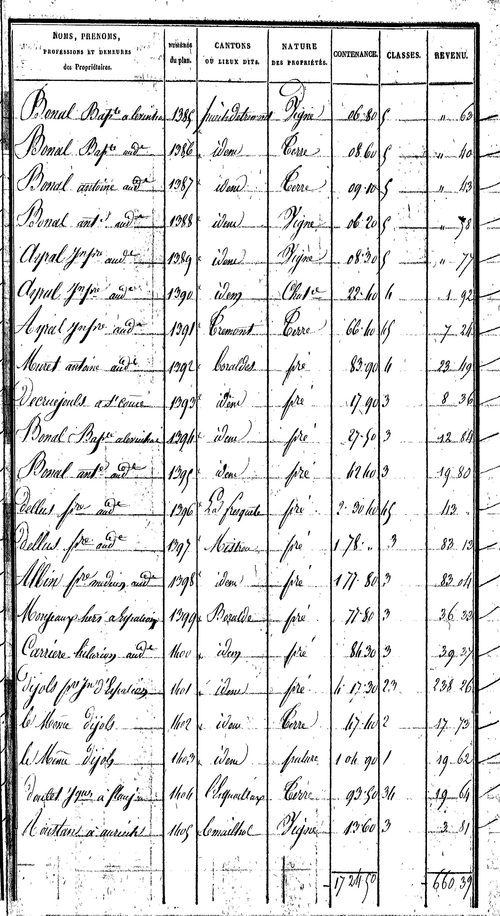 NOMS, PRENOMS, PROFESSIONS ET DEMEURES des Propriétaires. NUMÉROS du plan. CANTONS OU LIEUX DITS. NATURE DES PROPRIÉTÉS. CONTENANCE. CLASSES. REVENU.
Bonal Bapte 1385 Vigne 06.80 5 " 63
Bonal Bapte aude 1386 idem Terre 08.60 5 " 40
Bonal antoine aude 1387 idem Terre 09.10 5 " 43
Bonal ant. aude 1388 idem Vigne 06.20 5 " 58
Ayral aude 1389 idem Vigne 08.30 5 " 77
Ayral aude 1390 idem 22.40 4 1 92
Ayral aude 1391 Tremont Terre 66.40 45 7 24
Muret antoine aude 1392 Coraldes pré 83.90 4 23 49
Decruejouls a St Come 1393 idem pré 17.90 3 8 36
Bonal Bapte 1394 idem pré 27.50 3 12 84
Bonal ant. aude 1395 idem pré 42.40 3 19 80
dellus pre aude 1396 La pré 2.30.40 45 43 "
dellus pre aude 1397 pré 1 78. " 3 83 13
Albin aude 1398 idem pré 1 77.80 3 83 04
1399 Boralde pré 77.80 3 36 33
Carrière hilarion aude 1400 idem pré 84.30 3 39 37
dijols 1401 idem pré 4 17.30 23 238 26
le Même dijols 1402 idem Terre 47.40 2 17 73
le Même dijols 1403 idem pature 1 04 90 1 19 62
1404 Terre 93.50 34 19 64
1405 Vigne 13.60 3 3 81
17 24 50 660 39